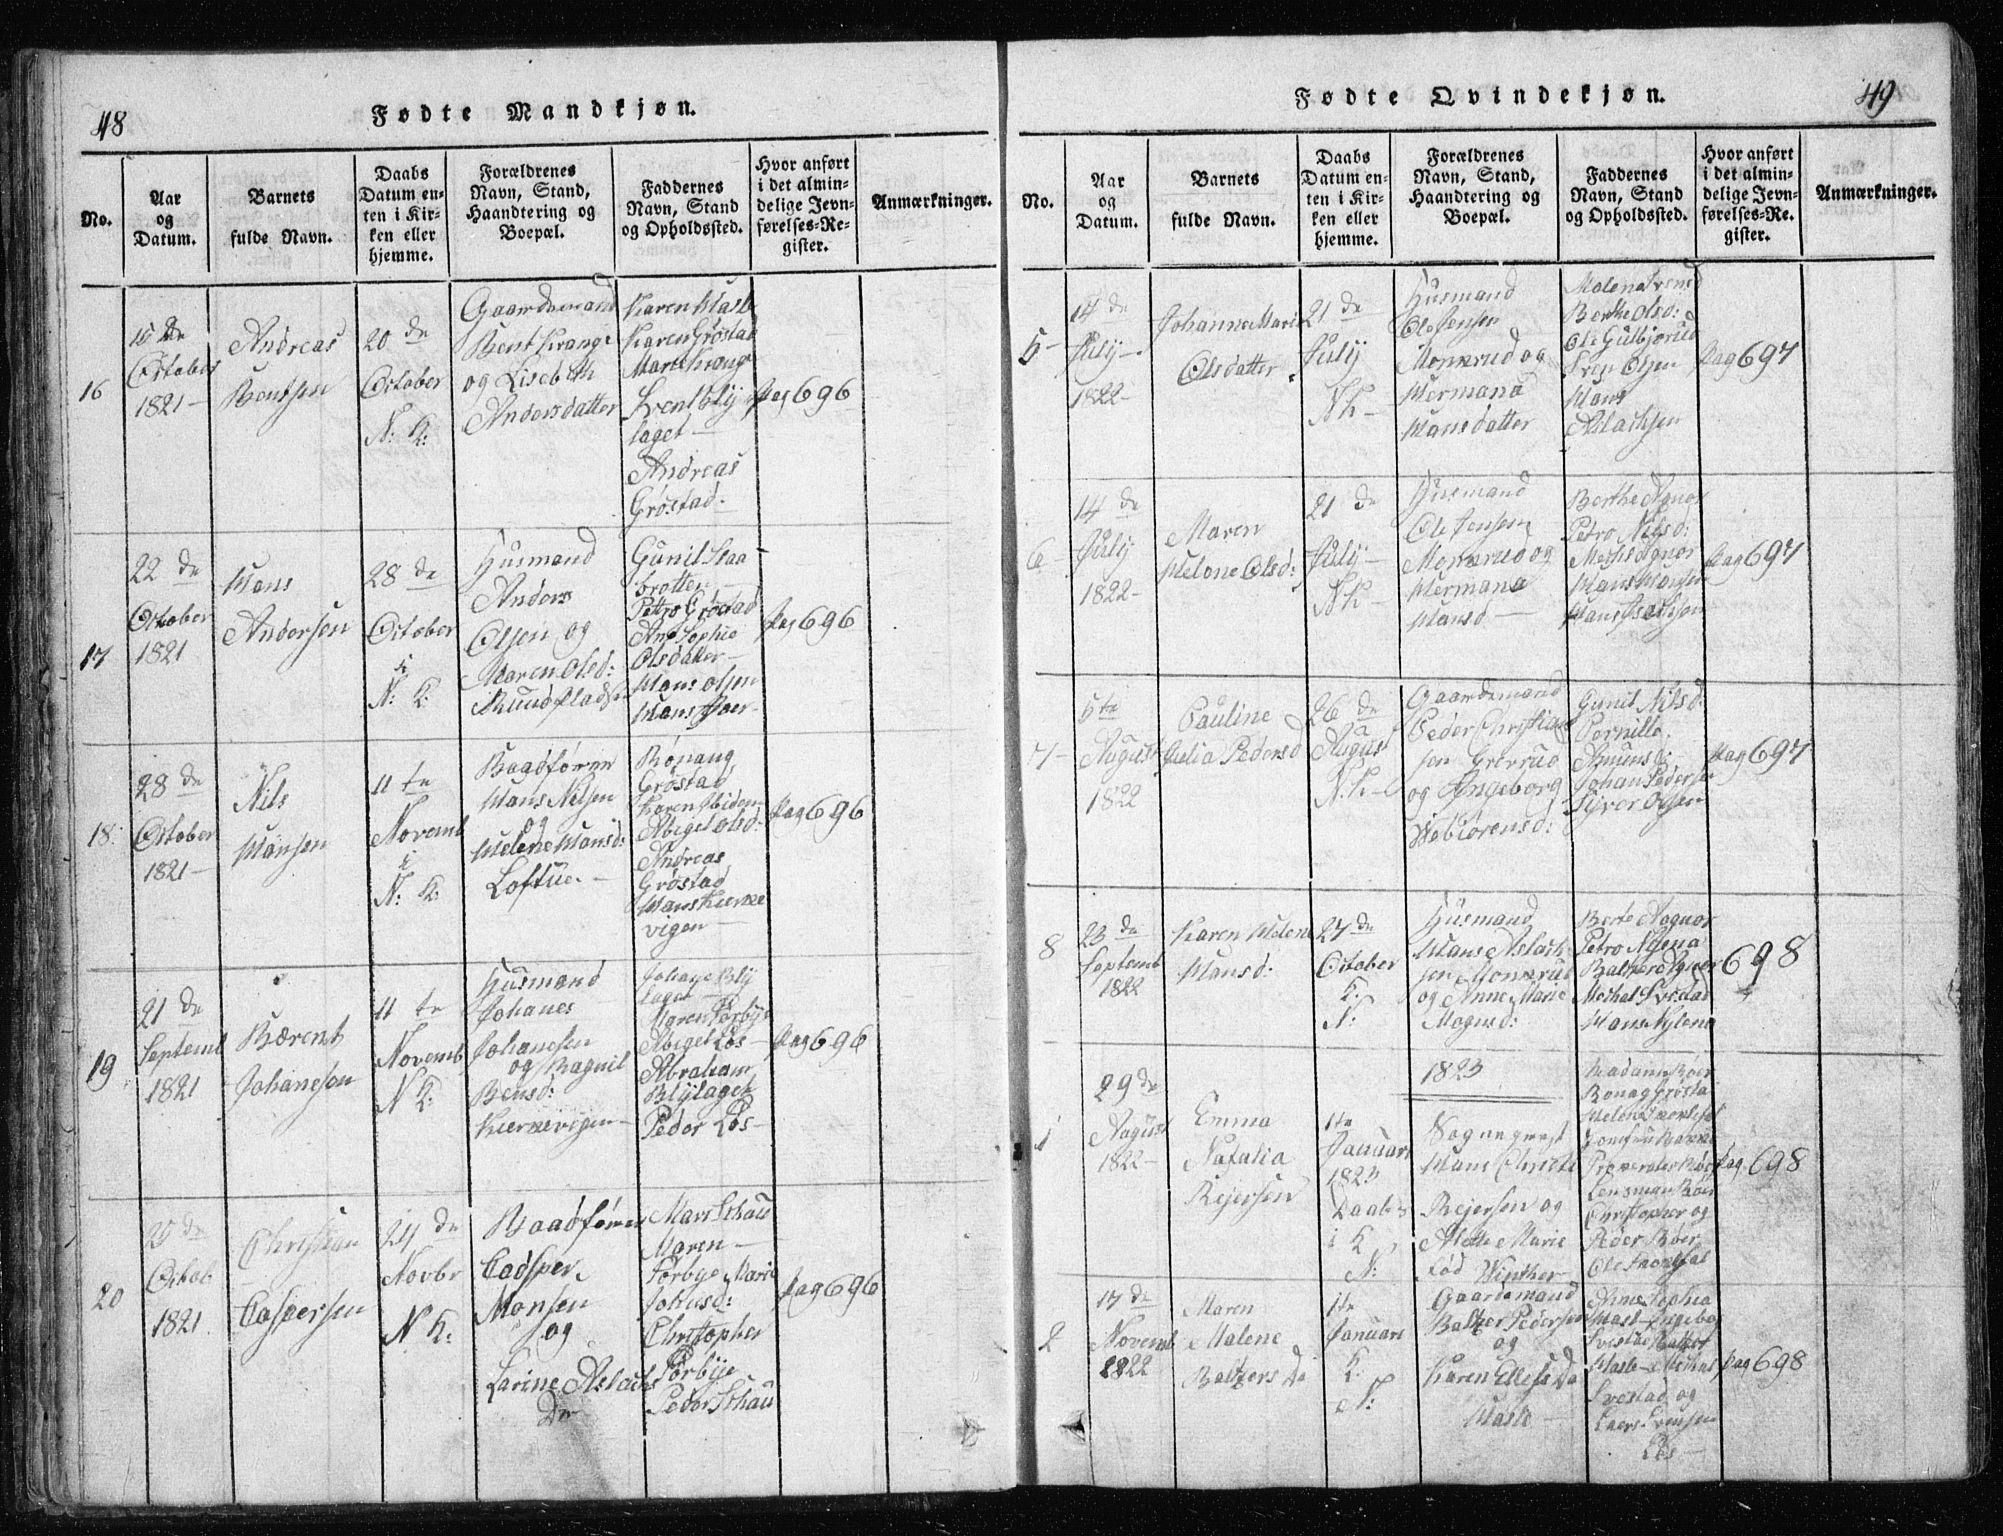 48
Fødte Mandkjøn.
No.
Aar
og
Datum.
Barnets
fulde Navn.
Daabs
Datum en-
ten i Kir-
ken eller
hjemme.
Forældrenes
Navn, Stand,
Haandtering og
Boepæl.
Faddernes
Navn, Stand
og Opholdssted.
Hvor anført
i det almin-
delige Jevn-
førelses-Re-
gister.
Anmærkninger.
16
15 de
October
1821
Andreas
Bentsen
20 de
October
N: K:
Gaardemand
Bent Krange
og Lisebeth
Andersdatter
Karen Hasle
Karen Grøstad
Mari Krange
Svent Blÿ
laget
Andreas
Grøstad
Pag 696
17
22 de
October
1821
Hans
Andersen
28 de
October
i
N: K:
Husmand
Anders
Olsen og
Maren Olsd:
Gunil Skaa
brotten
Petter Grøstad
Ane Sophie
Olsdatter
Hans Olsen
Pag 696
18
28 de
October
1821
Nils
Hansen
11 te
Novemb
i
N: K:
Baadfører
Hans Nilsen
og
Helene Hansd:
Loftue
Rønaug
Grøstad
Karen Ibiden
Abigel Olsd:
Andreas
Grøstad
Hans Kierne
vigen
Pag 696
19
21 de
Septemb
1821
Bærent
Johanesen
11 te
Novemb
N K:
Husmand
Johanes
Johanesen
og Ragnil
Bensd:
Kiernevigen
Johane Blÿ
laget
Maren Torbye
Abigel Løs
Abraham
Blÿlaget
Peder Løs
Pag 696
20
25 de
Octob
1821
Christian
Caspersen
24 de
Novbr
N K:
Baadfører
Casper
Monsen
og
Larine Aslachs
Dr
Mari Skhau
Maren
Torbye Marie
Johusd:
Christopher
Torbye
Peder Skhau
Pag 696
49
Fødte Qvindekjøn.
No.
Aar
og
Datum.
Barnets
fulde Navn.
Daabs
Datum en-
ten i Kir-
ken eller
hjemme.
Forældrenes
Navn, Stand,
Haandtering og
Boepæl.
Faddernes
Navn, Stand
og Opholdssted.
Hvor anført
i det almin-
delige Jevn-
førelses-Re-
gister.
Anmærkninger.
5
14 de
Julÿ
1822
Johanne Marie
Olsdatter
21 de
Julÿ
N K
Husmand
Ole Jensen
Monnerud og
Hermana
Hansdatter
Berthe Olsd:
Ole Gulbjørud
Sven Olsen
Hans
Aslachsen
Pag 697
6
14 de
Julÿ
1822
Maren
Helene Olsd:
21 de
Julÿ
N K
Husmand
Ole Jensen
Monnerud og
Hermana
Hansd
Berthe Agnor
Petro Nilsd:
Mechel Agnor
Hans Hansen
Hans Isachsen
Pag 697
7
5 te
August
1822
Pauline
Julia Pedersd
26 de
August
N. K
Gaardemand
Peder Christian
sen Grerrud
og Ingeborg
Gunil Nilsd:
Pernille
Amunsd:
Johan Pedersen
Syver Olsen
Pag 697
8
23 de
Septemb
1822
Karen Helene
Hansd:
27 de
October
K.
N:
Husmand
Hans Aslach
sen Monnerud
og Anne Marie
Mogensd:
Berte Aagnor
Petro Nÿlena
Baltzer Agnor
Mechal Svestad
Hans Nylena
698
1823
1
29 de
August
1822
Emma
Natalia
Rejersen
1te
Januari
1823
Daabes
i K
N:
Sognepræst
Hans Christi
Rejersen og
Alette Marie
fød Winther
Madame Bøer
Ronag Grøsta
Procurator Bøer
Lensman Bøer
Christopher og
Peder Bøer
Pag. 698
2
17 de
Novemb
1822
Maren
Malene
Baltzers Da
1te
Januari
K.
N:
Gaardemand
Baltzer Pedersen
og
Karen Ellefs Da
Hasle
Anne Sophia
Hasle Ingebor
Svestad Baltzer
Hasle Michal
Svestad og
Laers Svensen
Løs
Pag 698